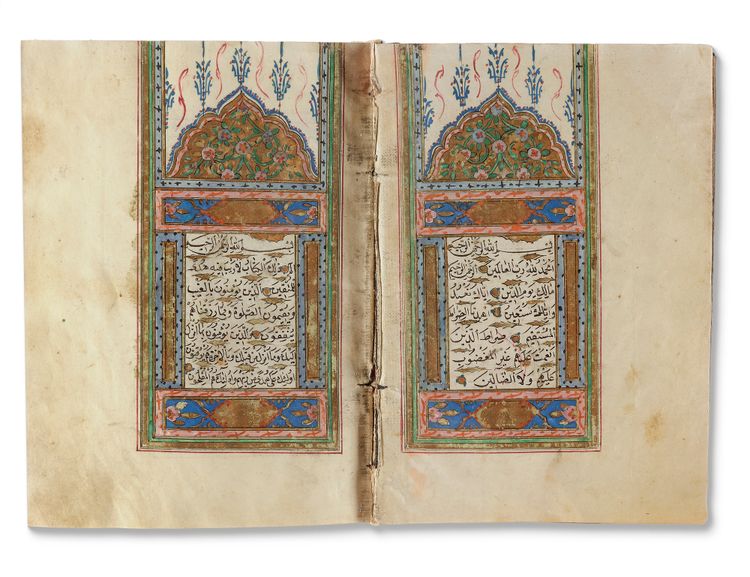 بسم الله الرحمن الرحيم
الحمد لله رب العالمين الرحمن الرحيم
مالك يوم الدين اياك نعبد
واياك نستعين اهدنا الصراط
المستقيم صراط الذين
انعمت عليهم غير المغضوب
عليهم ولا الضالين
بسم الله الرحمن الرحيم
الم ذلك الكتاب لا ريب فيه هدى
للمتقين الذين يؤمنون بالغيب
ويقيمون الصلوة ومما رزقناهم
ينفقون والذين يؤمنون بما انزل
اليك وما انزل من قبلك وبالاخرة هم يوقنون
اولئك على هدى من ربهم واولئك هم المفلحون